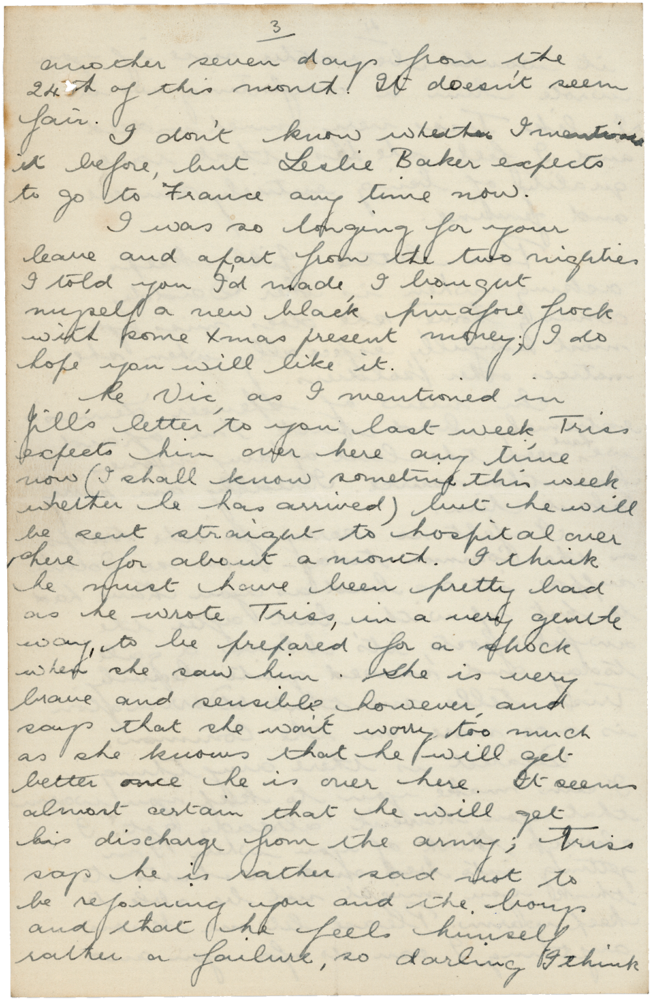 3
another seven days from the
24th of this month! It doesn't seem
fair.
I don't know whether I mention
it before, but Leslie Baker expects
to go to France any time now.
I was so longing for your
leave and apart from the two nighties
I told you I'd made, I bought
myself a new black pinafore frock
with some Xmas present money; I do
hope you will like it.
Re Vic, as I mentioned in
Jill's letter to you last week, Triss
expects him over here any time
now (I shall know sometime this week
whether he has arrived) but he will
be sent straight to hospital over
here for about a month. I think
he must have been pretty bad
as he wrote Triss, in a very gentle
way, to be prepared for a shock
when she saw him. She is very
brave and sensible, however, and
says that she won't worry too much
as she knows that he will get
better once he is over here. It seems
almost certain that he will get
his discharge from the army; Triss
says he is rather sad not to
be rejoining you and the boys
and that he feels himself
rather a failure, so darling I think